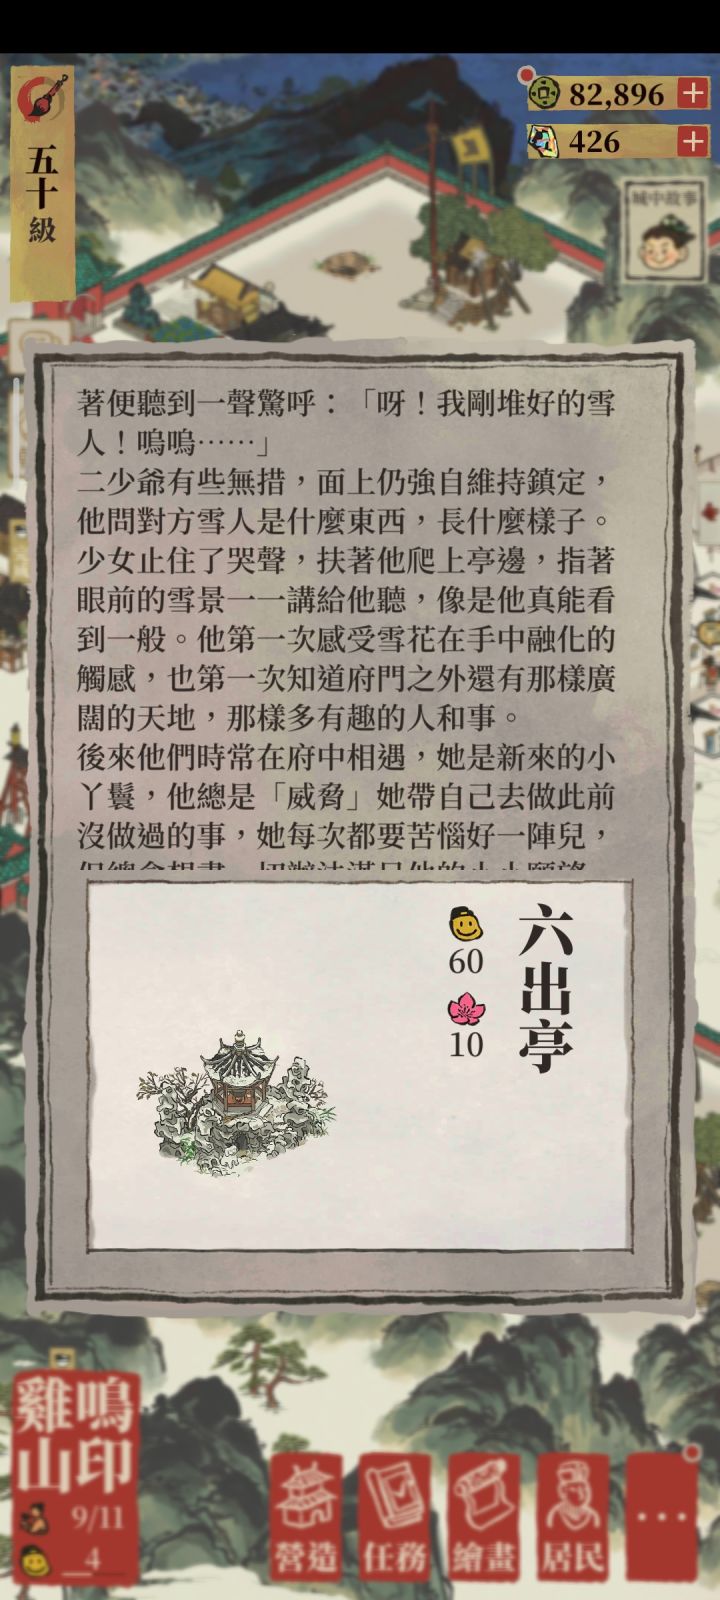 五十級
82,896
426
城中故事
著便聽到一聲驚呼：「呀！我剛堆好的雪
人！嗚嗚……」
二少爺有些無措，面上仍強自維持鎮定，
他問對方雪人是什麼東西，長什麼樣子。
少女止住了哭聲，扶著他爬上亭邊，指著
眼前的雪景一一講給他聽，像是他真能看
到一般。他第一次感受雪花在手中融化的
觸感，也第一次知道府門之外還有那樣廣
闊的天地，那樣多有趣的人和事。
後來他們時常在府中相遇，她是新來的小
丫鬟，他總是「威脅」她帶自己去做此前
沒做過的事，她每次都要苦惱好一陣兒，
六出亭
60
10
雞鳴
山印
9/11
4
營造
任務
繪畫
居民